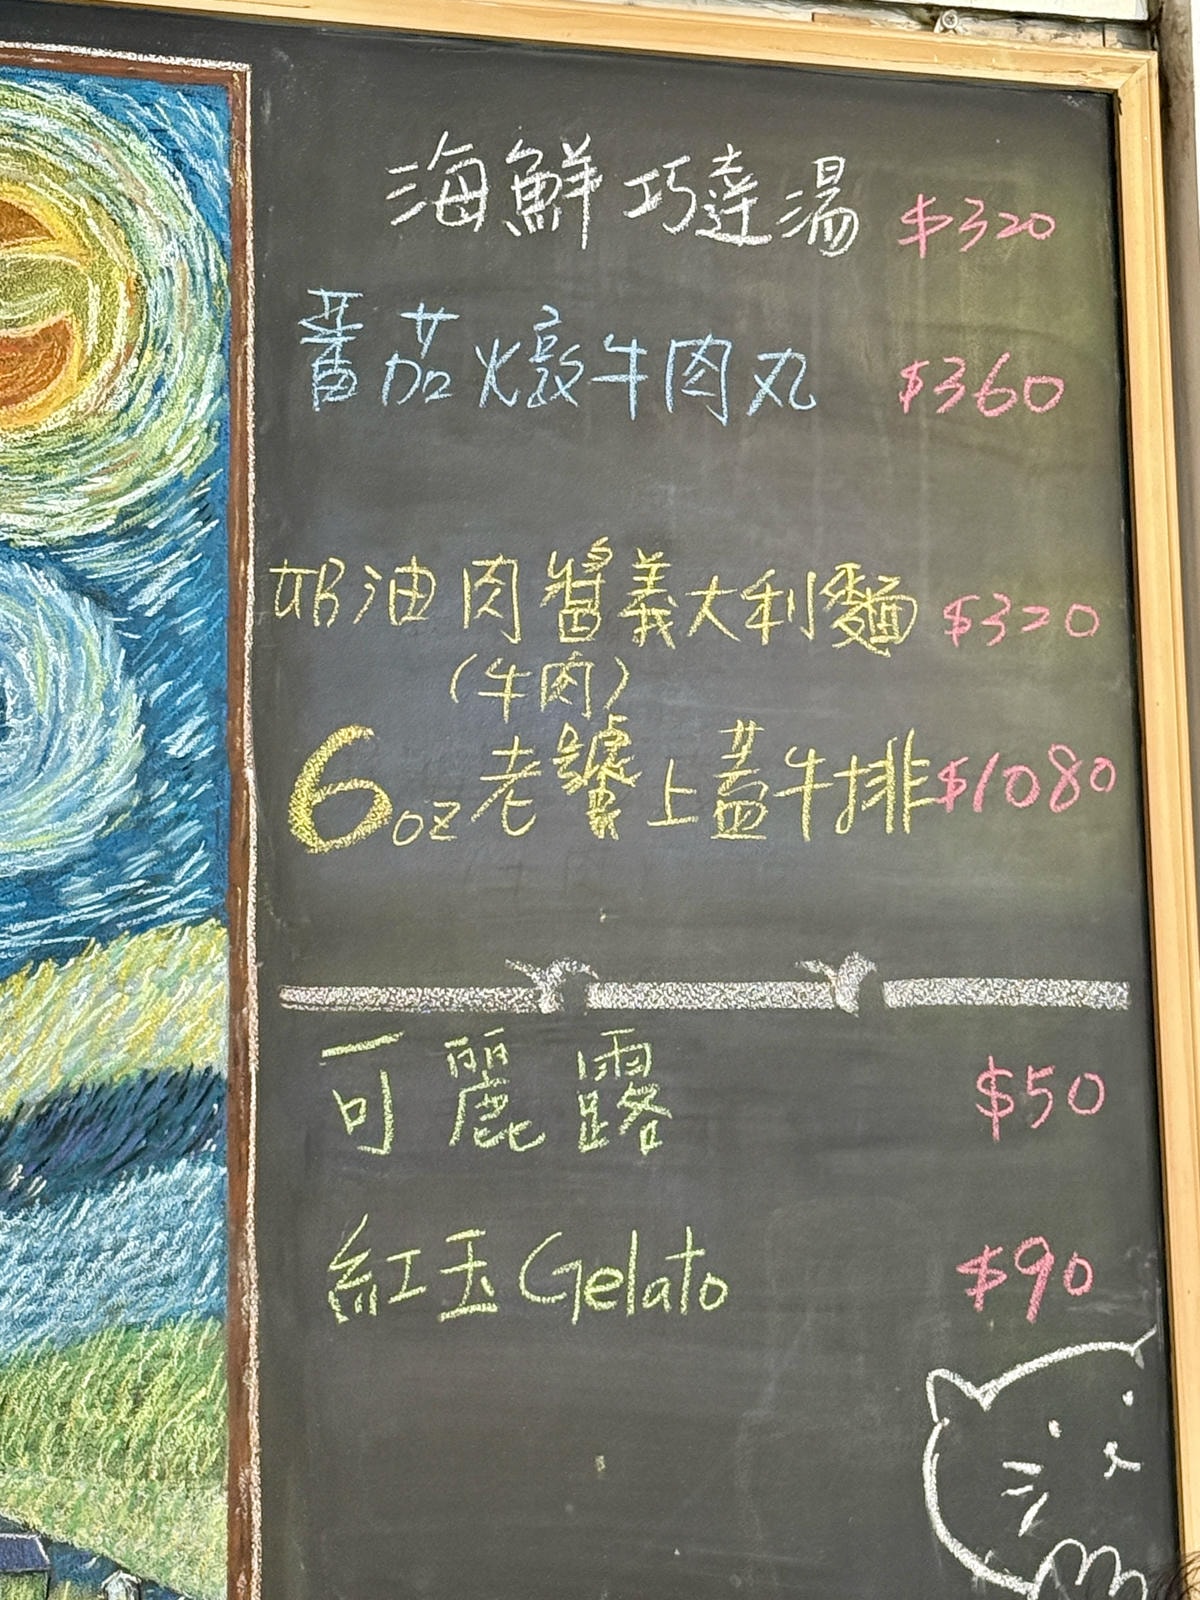 海鮮巧達湯 $320
番茄燉牛肉丸 $360
奶油肉醬義大利麵 $320
(牛肉)
6oz老饕上蓋牛排 $1080
可麗露 $50
紅玉Gelato $90